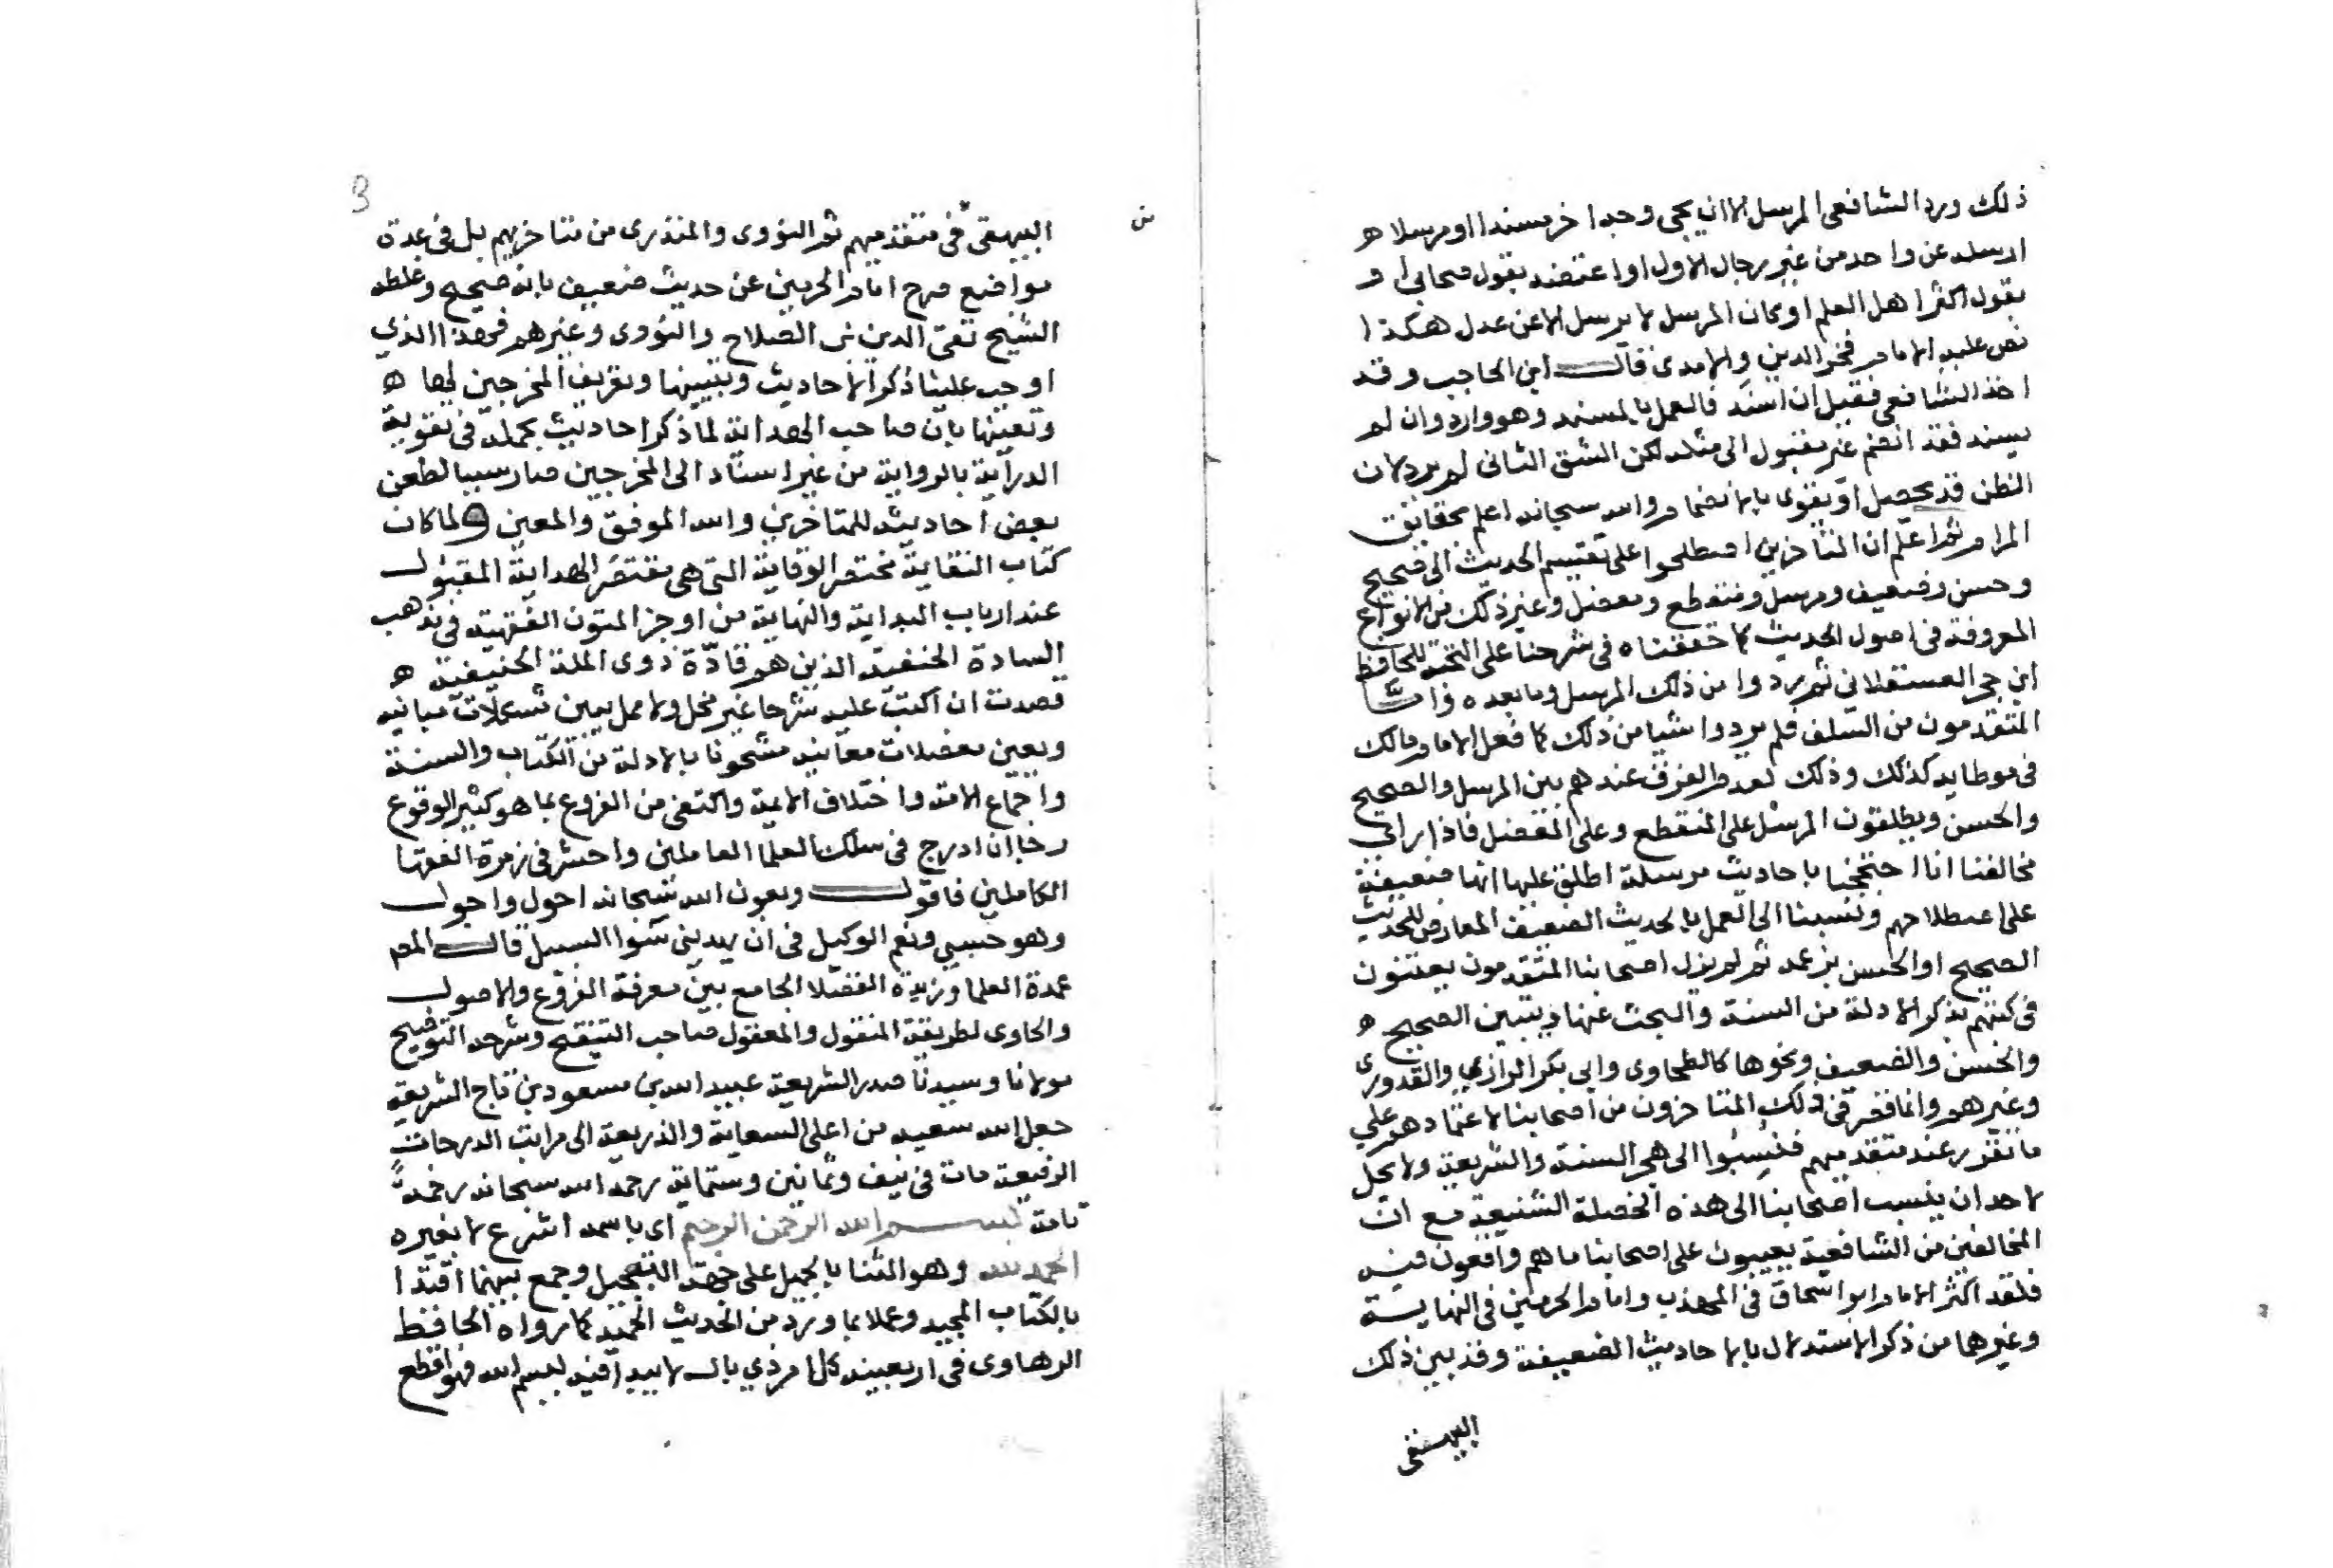 ذلك ورد الشافعى المرسل الا ان يجى وجد اخر مسندا او مرسلا ه
ارسله عن واحد من غير رجال الاول او اعتضد بقول صحابى او
بقول اكثر اهل العلم او كان المرسل لا يرسل الا عن عدل هكذا
نص عليه الامام فخر الدين والامدى قال ابن الحاجب وقد
اخذ الشافعى فقيل ان اسند فالعمل بالمسند وهو وارد وان لم
يسند فقد انضم غير مقبول الى مثله لكن الشق الثانى لم يرد لان
الظن قد يحصل او يقوى بالانضمام والله سبحانه اعلم بحقايق
المرام ثم اعلم ان المتاخرين اصطلحوا على تقسيم الحديث الى صحيح
وحسن وضعيف ومرسل ومنقطع ومعضل وغير ذلك من الانواع
المعروفة فى اصول الحديث كما حققناه فى شرحنا على النخبة للحافظ
ابن حجر العسقلانى ثم ردوا من ذلك المرسل وما بعده واما
المتقدمون من السلف فلم يردوا شيا من ذلك كما فعل الامام مالك
فى موطايه كذلك وذلك لعدم الفرق عندهم بين المرسل والصحيح
والحسن ويطلقون المرسل على المنقطع وعلى المعضل فاذا راى
مخالفنا انا احتججنا باحاديث مرسلة اطلق عليها انها ضعيفة
على اصطلاحهم ونسبنا الى العمل بالحديث الضعيف المعارض للحديث
الصحيح او الحسن بزعمه ثم لم يزل اصحابنا المتقدمون يعتنون
فى كتبهم بذكر الادلة من السنة والبحث عنها وتبيين الصحيح ه
والحسن والضعيف ونحوها كالطحاوى وابى بكر الرازى والقدورى
وغيرهم وانما قصر فى ذلك المتاخرون من اصحابنا لاعتمادهم على
ما تقرر عند متقدميهم فنسبوا الى هجر السنة والشريعة ولا يحل
لاحد ان ينسب اصحابنا الى هذه الخصلة الشنيعة مع ان
المخالفين من الشافعية يعيبون على اصحابنا ما هم واقعون فيه
فلقد اكثر الامام ابو اسحاق فى المهذب وامام الحرمين فى النهاية
وغيرهما من ذكر الاستدلال بالاحاديث الضعيفة وقد بين ذلك
البيهقى
3
البيهقى فى متقدميهم ثم النووى والمنذرى من متاخريهم بل فى عدة
مواضع صرح امام الحرمين عن حديث ضعيف بانه صحيح وغلطه
الشيخ تقى الدين بن الصلاح والنووى وغيرهم فهذا الذي
اوجب علينا ذكر الاحاديث وتبيينها وتعريف المخرجين لها ه
وتعينها بان صاحب الهداية لما ذكر احاديث مجملة فى تقوية
الدراية بالرواية من غير اسناد الى المخرجين صار سببا لطعن
بعض احاديثه للمتاخرين والله الموفق والمعين ولما كان
كتاب النقاية مختصر الوقاية التى هى مقتصر الهداية المقبول
عند ارباب البداية والنهاية من اوجز المتون الفقهية فى مذهب
السادة الحنفية الذين هم قادة ذوى الملة الحنيفية ه
قصدت ان اكتب عليه شرحا غير مخل ولا ممل يبين مشكلات مبانيه
ويعين معضلات معانيه مشحونا بالادلة من الكتاب والسنة
واجماع الامة واختلاف الايمة واكتفى من الفروع بما هو كثير الوقوع
رجا ان ادرج فى سلك العلما العاملين واحشر فى زمرة الفقها
الكاملين فاقول وبعون الله سبحانه احول واجول
وهو حسبى ونعم الوكيل فى ان يهدينى سوا السبيل قال المص
عمدة العلما وزبدة الفضلا الجامع بين معرفة الفروع والاصول
والحاوى لطريقة المنقول والمعقول صاحب التنقيح وشرحه التوضيح
مولانا وسيدنا صدر الشريعة عبيد الله بن مسعود بن تاج الشريعة
جعل الله سعيه من اعلى السعاية والذريعة الى مراتب الدرجات
الرفيعة مات فى نيف وثمانين وستماية رحمه الله سبحانه رحمة
تامة بسم الله الرحمن الرحيم اى باسمه اشرع لا بغيره
الحمد لله وهو الثنا بالجميل على جهة التبجيل وجمع بينهما اقتدا
بالكتاب المجيد وعملا بما ورد من الحديث الحميد كما رواه الحافظ
الرهاوى فى اربعينه كل امر ذي بال لا يبدا فيه ببسم الله فهو اقطع